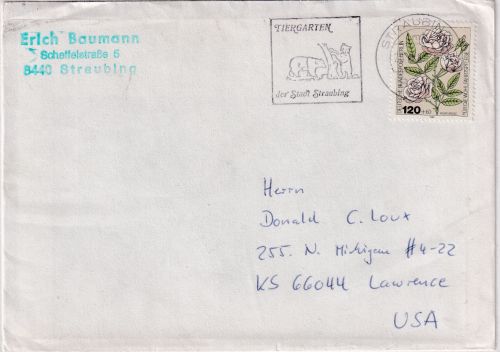 Erich Baumann
Scheffelstraße 5
8440 Straubing
TIERGARTEN
der Stadt Straubing
STRAUBING
120
Herrn
Donald C. Loux
255. N. Michigan #4-22
KS 66044 Lawrence
USA